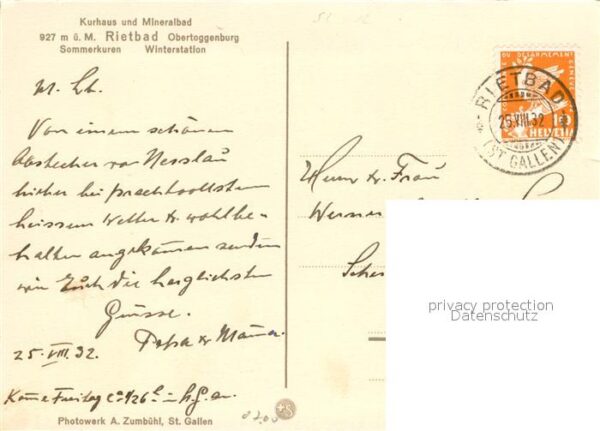 Kurhaus und Mineralbad
927 m ü. M. Rietbad Obertoggenburg
Sommerkuren Winterstation
M. Lb.
Von einem schönen
Abstecher von Nesslau
hieher bei prachtvollstem
heissem Wetter & wohlbe-
halten angekommen senden
wir Euch die herzlichsten
Grüsse.
Papa & Mama.
25. VIII. 32
Komme Freitag
Photowerk A. Zumbühl, St. Gallen
DU DÉSARMEMENT
10
HELVETIA
RIETBAD
25.VIII.32
(ST. GALLEN)
Herrn & Frau
Werner
privacy protection
Datenschutz